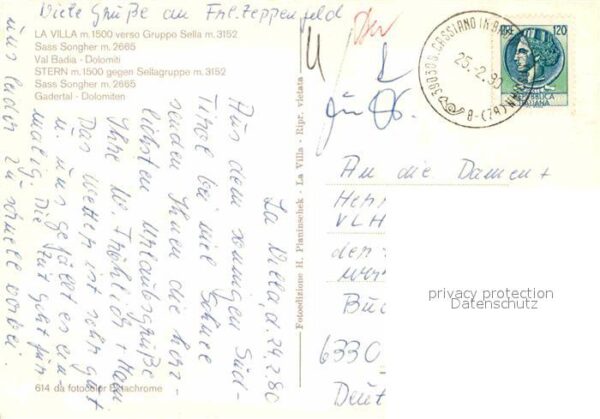 Viele Grüße an Frl. Zeppenfeld
LA VILLA m.1500 verso Gruppo Sella m. 3152
Sass Songher m. 2665
Val Badia - Dolomiti
STERN m.1500 gegen Sellagruppe m. 3152
Sass Songher m. 2665
Gadertal - Dolomiten
La Villa, d. 24.2.80
Aus dem sonnigen Süd-
Tirol bei viel Schnee
senden Ihnen die herz-
lichsten Urlaubsgrüße
Ihre M. Fröhlich + Mann
Das Wetter ist sehr gut
u. uns gefällt es ein-
malig. Die Zeit geht für
uns leider zu schnell vorbei.
614 da fotocolor Ektachrome
Fotoedizione H. Planinschek - La Villa - Ripr. vietata
39030 S. CASSIANO IN BADIA
25.2.80
(BZ)
LIRE 120
REPUBBLICA
ITALIANA
An die Damen +
Herr
VLH
den
Buc
6330
Deut
privacy protection
Datenschutz